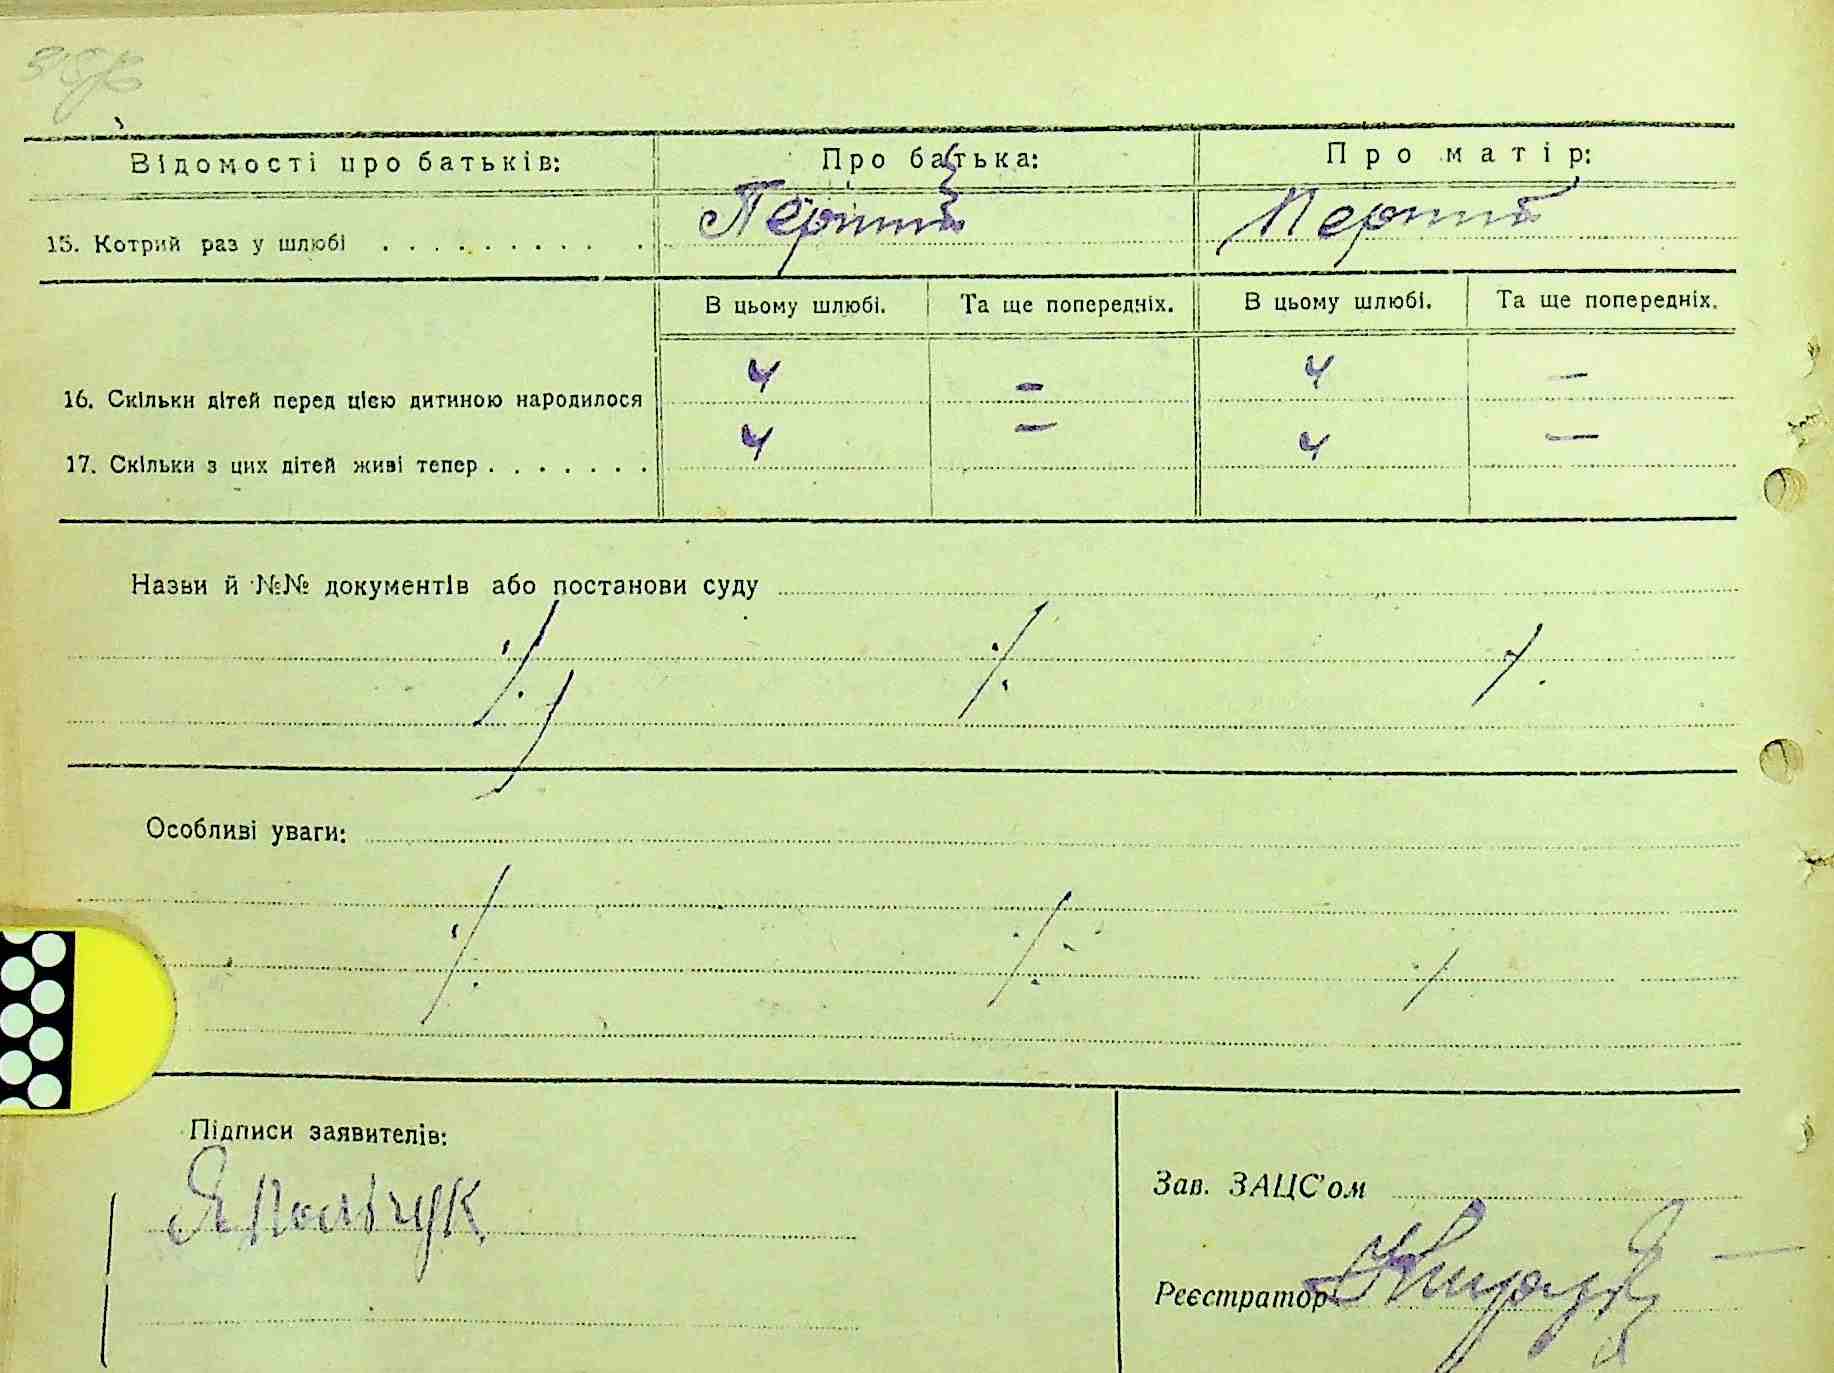 Відомості про батьків: Про батька: Про матір:
15. Котрий раз у шлюбі . . . . . . . . . . Перший Перший
В цьому шлюбі. Та ще попередніх. В цьому шлюбі. Та ще попередніх.
16. Скільки дітей перед цією дитиною народилося 4 – 4 –
17. Скільки з цих дітей живі тепер . . . . . . . 4 – 4 –
Назви й №№ документів або постанови суду
Особливі уваги:
Підписи заявителів:
Зав. ЗАЦС'ом
Реєстратор